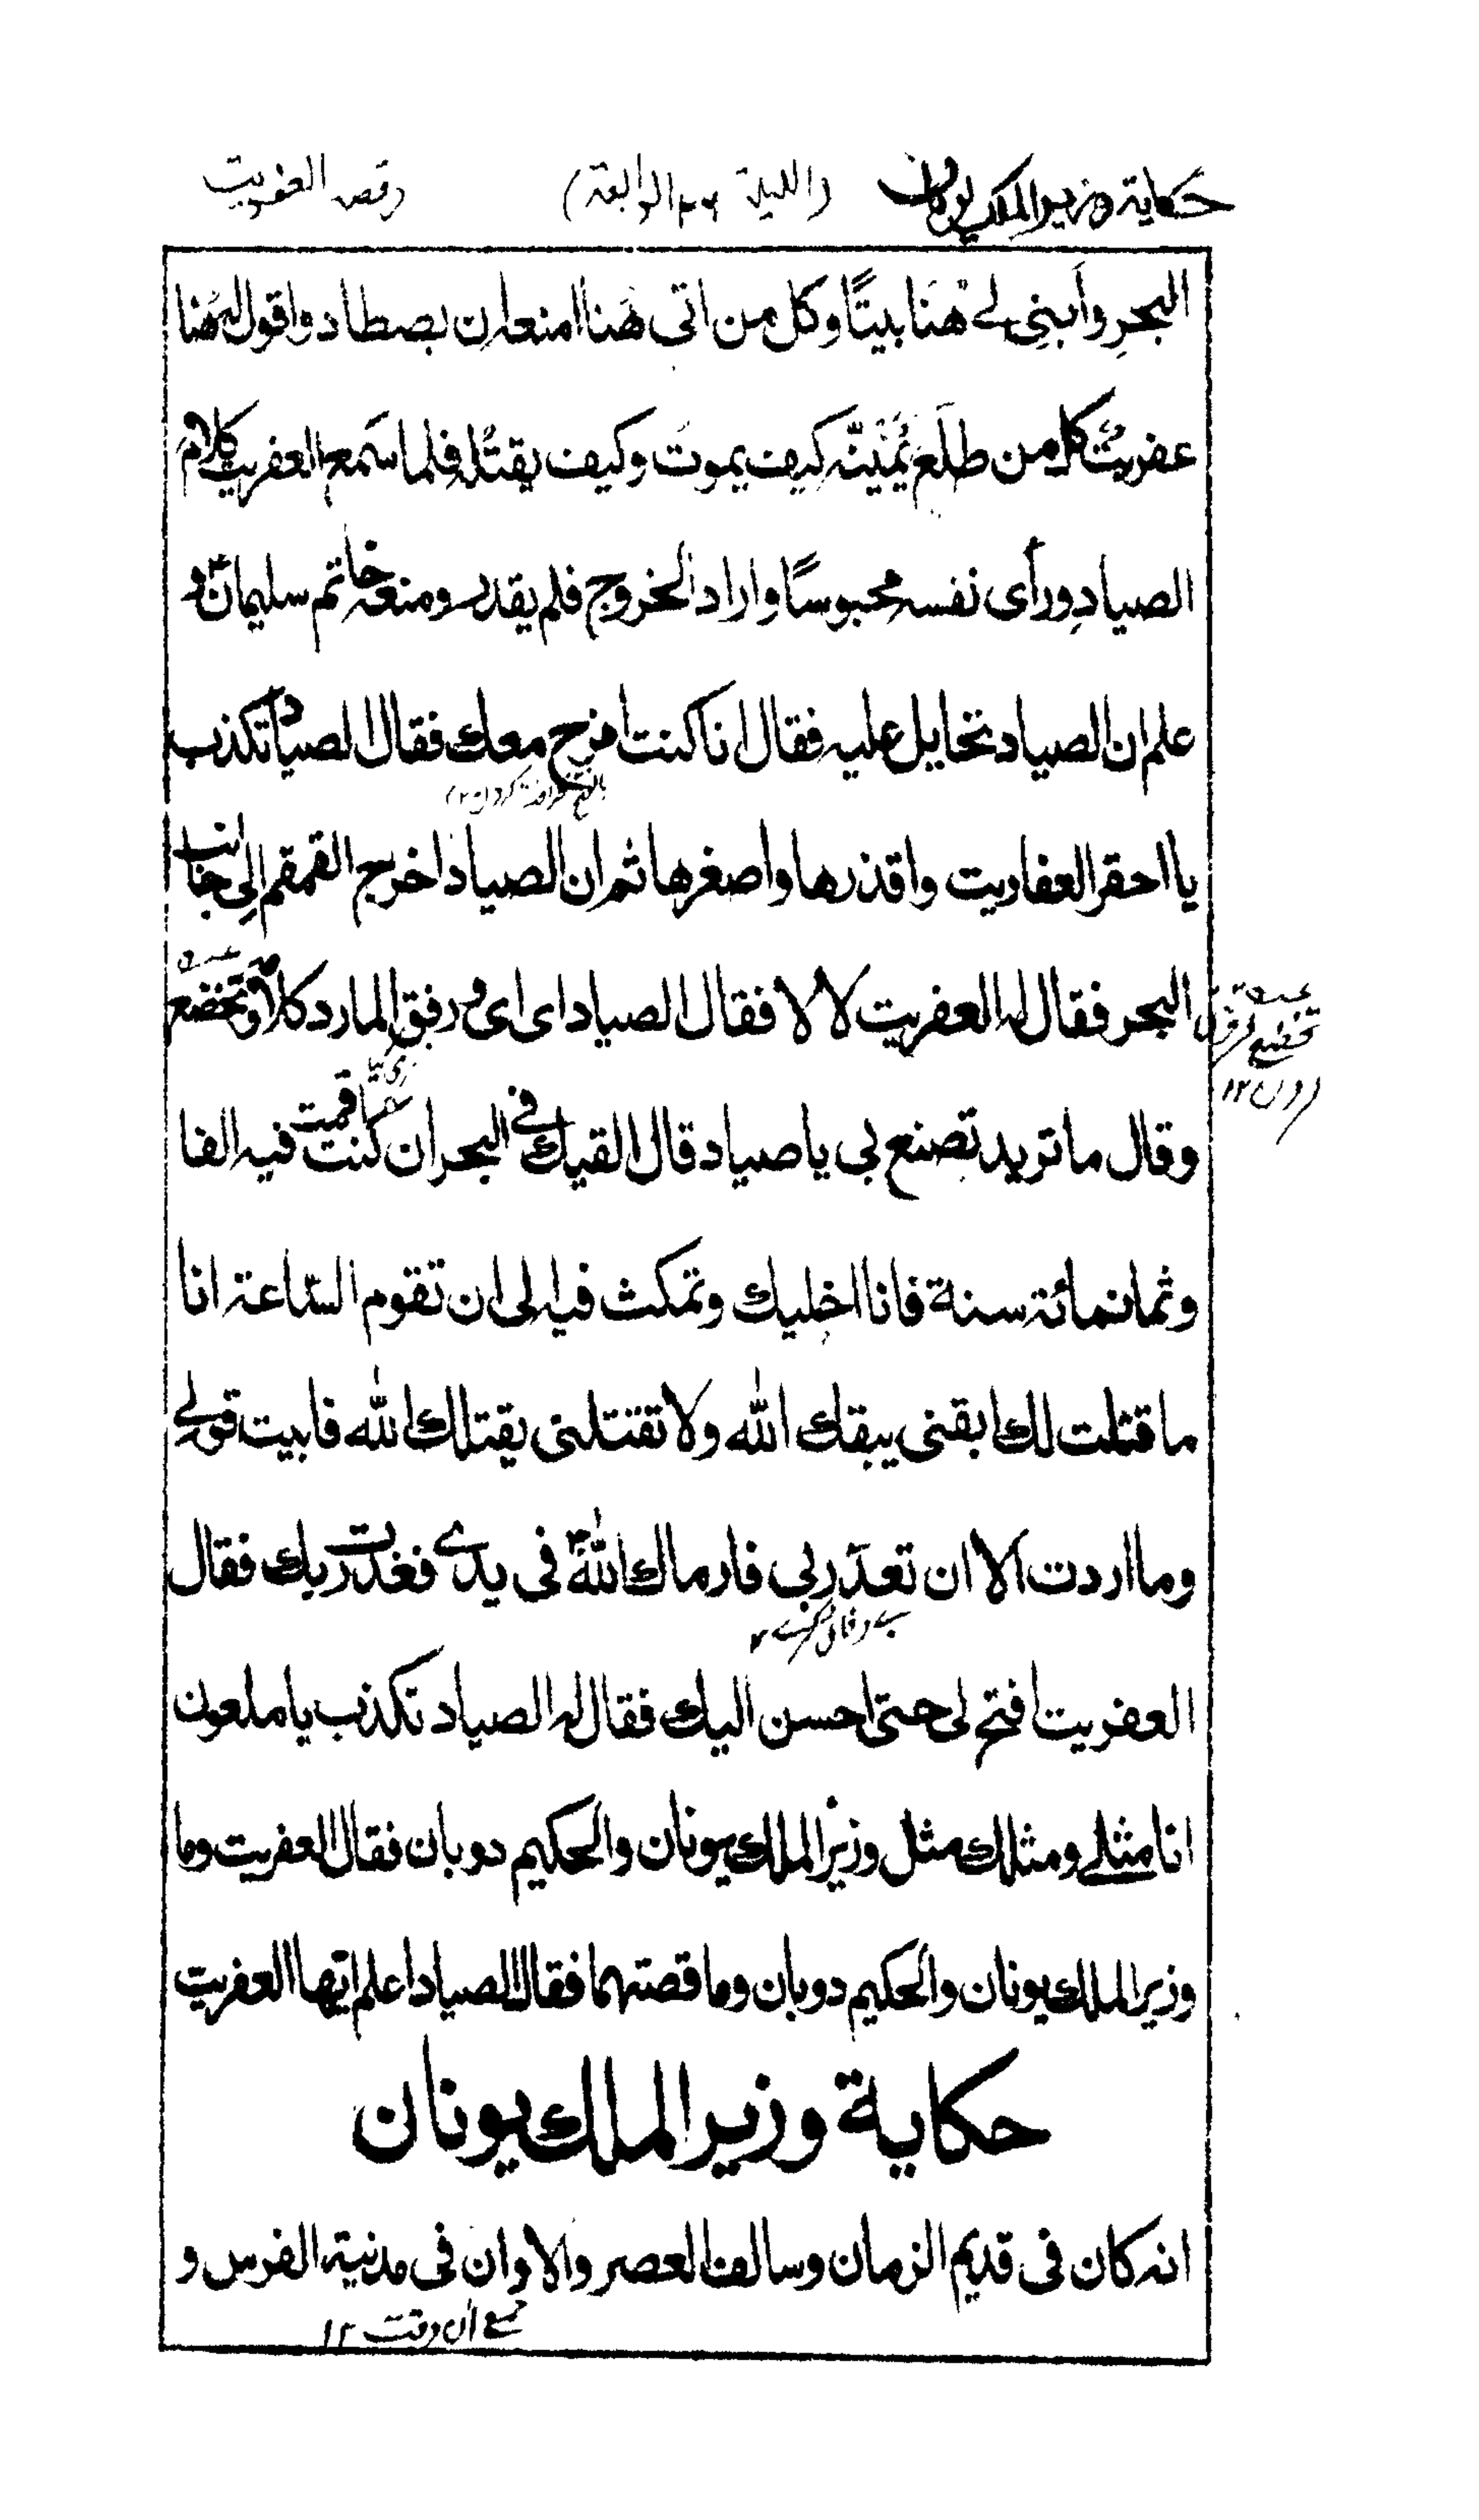 حكاية وزير الملك يونان (الليلة ۴۴ الرابعة) قصة العفريت
البحرِ وأبنِى لى هنَا بيتًا وكل من اتى هَنا امنعه ان يصطاد واقول له هُنا
عفريت كل من طلَع يُمَيّنه كيف يموتُ وكيف يقتله فلما سَمع العفريت كلام
الصيادِ ورأى نفسه محبوسًا واراد الخروج فلم يقدر ومنعه خاتم سليمان و
علم ان الصياد تحايل عليه فقال انا كنت امزح معك فقال الصياد تكذب
يا احقر العفاريت واقذرها واصغرها ثم ان الصياد اخرج القمقم الى جانب
البحر فقال له العفريت لا لا فقال الصياد اى اى فرفق المارد كلامه وتخضع
وقال ما تريد تصنع بى يا صياد قال القيك فى البحر ان كنت اقمت فيه الفا
وثمانمائة سنة فانا اخليك وتمكث فيه الى ان تقوم الساعة انا
ما قلت لك ابقنى يبقك الله ولا تقتلنى يقتلك الله فابيت قولى
وما اردت الا ان تغدر بى فارماك اللهُ فى يدى فغدرت بك فقال
العفريت افتح لى حتى احسن اليك فقال له الصياد تكذب يا ملعون
انا مثلى ومثلك مثل وزير الملك يونان والحكيم دوبان فقال العفريت وما
وزير الملك يونان والحكيم دوبان وما قصتهما فقال الصياد اعلم ايها العفريت
حكاية وزير الملك يونان
انه كان فى قديم الزمان وسالف العصر والاوان فى مدنية الفرس و